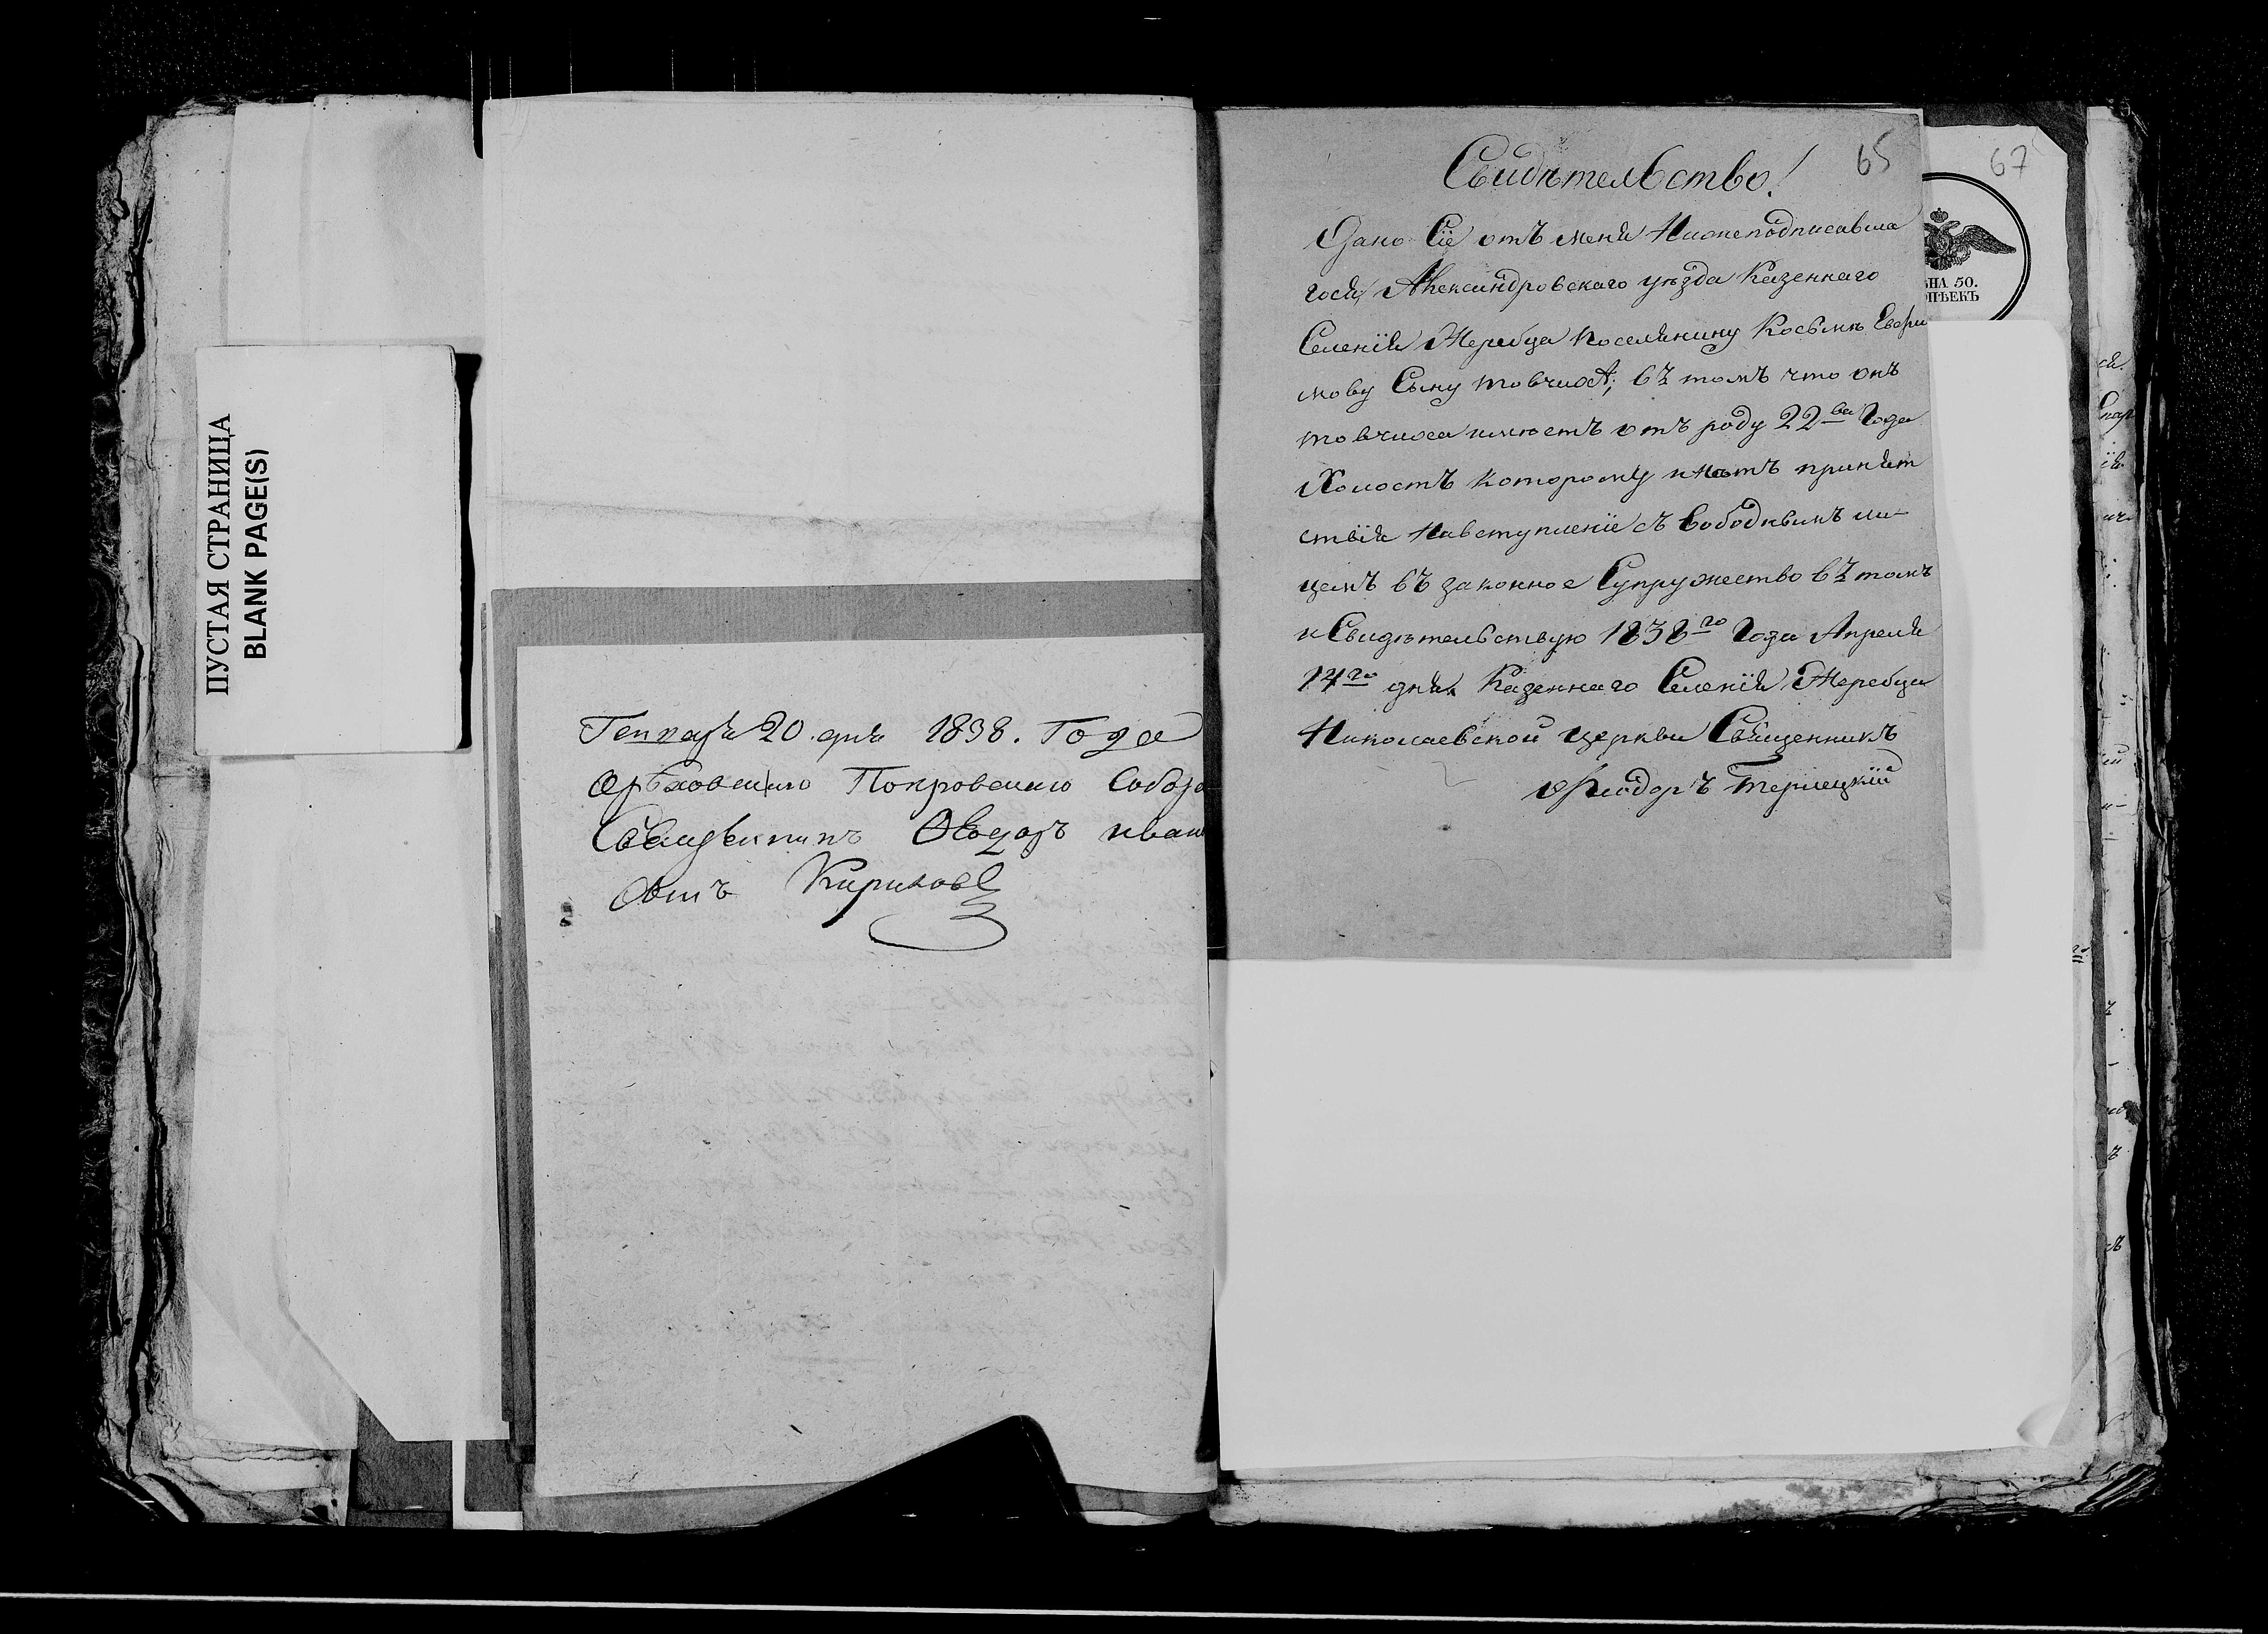 ПУСТАЯ СТРАНИЦА
BLANK PAGE(S)
Генваря 20 дня 1838. Года
Орѣховскаго Покровскаго Собора
Ѳеодоръ иван
Свидѣтельство!
65
67
Дано Сіе отъ меня Нижеподписавша
гося, Александровскаго уѣзда Казеннаго
Селенія Жеребца поселянину Косьмѣ Евѳи
мову Сыну товчиѳѣ, въ томъ что онъ
имѣетъ отъ роду 22ва Года
Холостъ которому нѣтъ припят
ствія Навступленіе съ Вободнымъ ли-
цемъ въ законное Супружество въ томъ
и Свидѣтельствую 1838го Года Апреля
14го дня. Казеннаго Селенія Жеребца
Николаевской церкви Священникъ
Ѳеодоръ Терлецкій
ВНА 50.
ОПѢЕКЪ